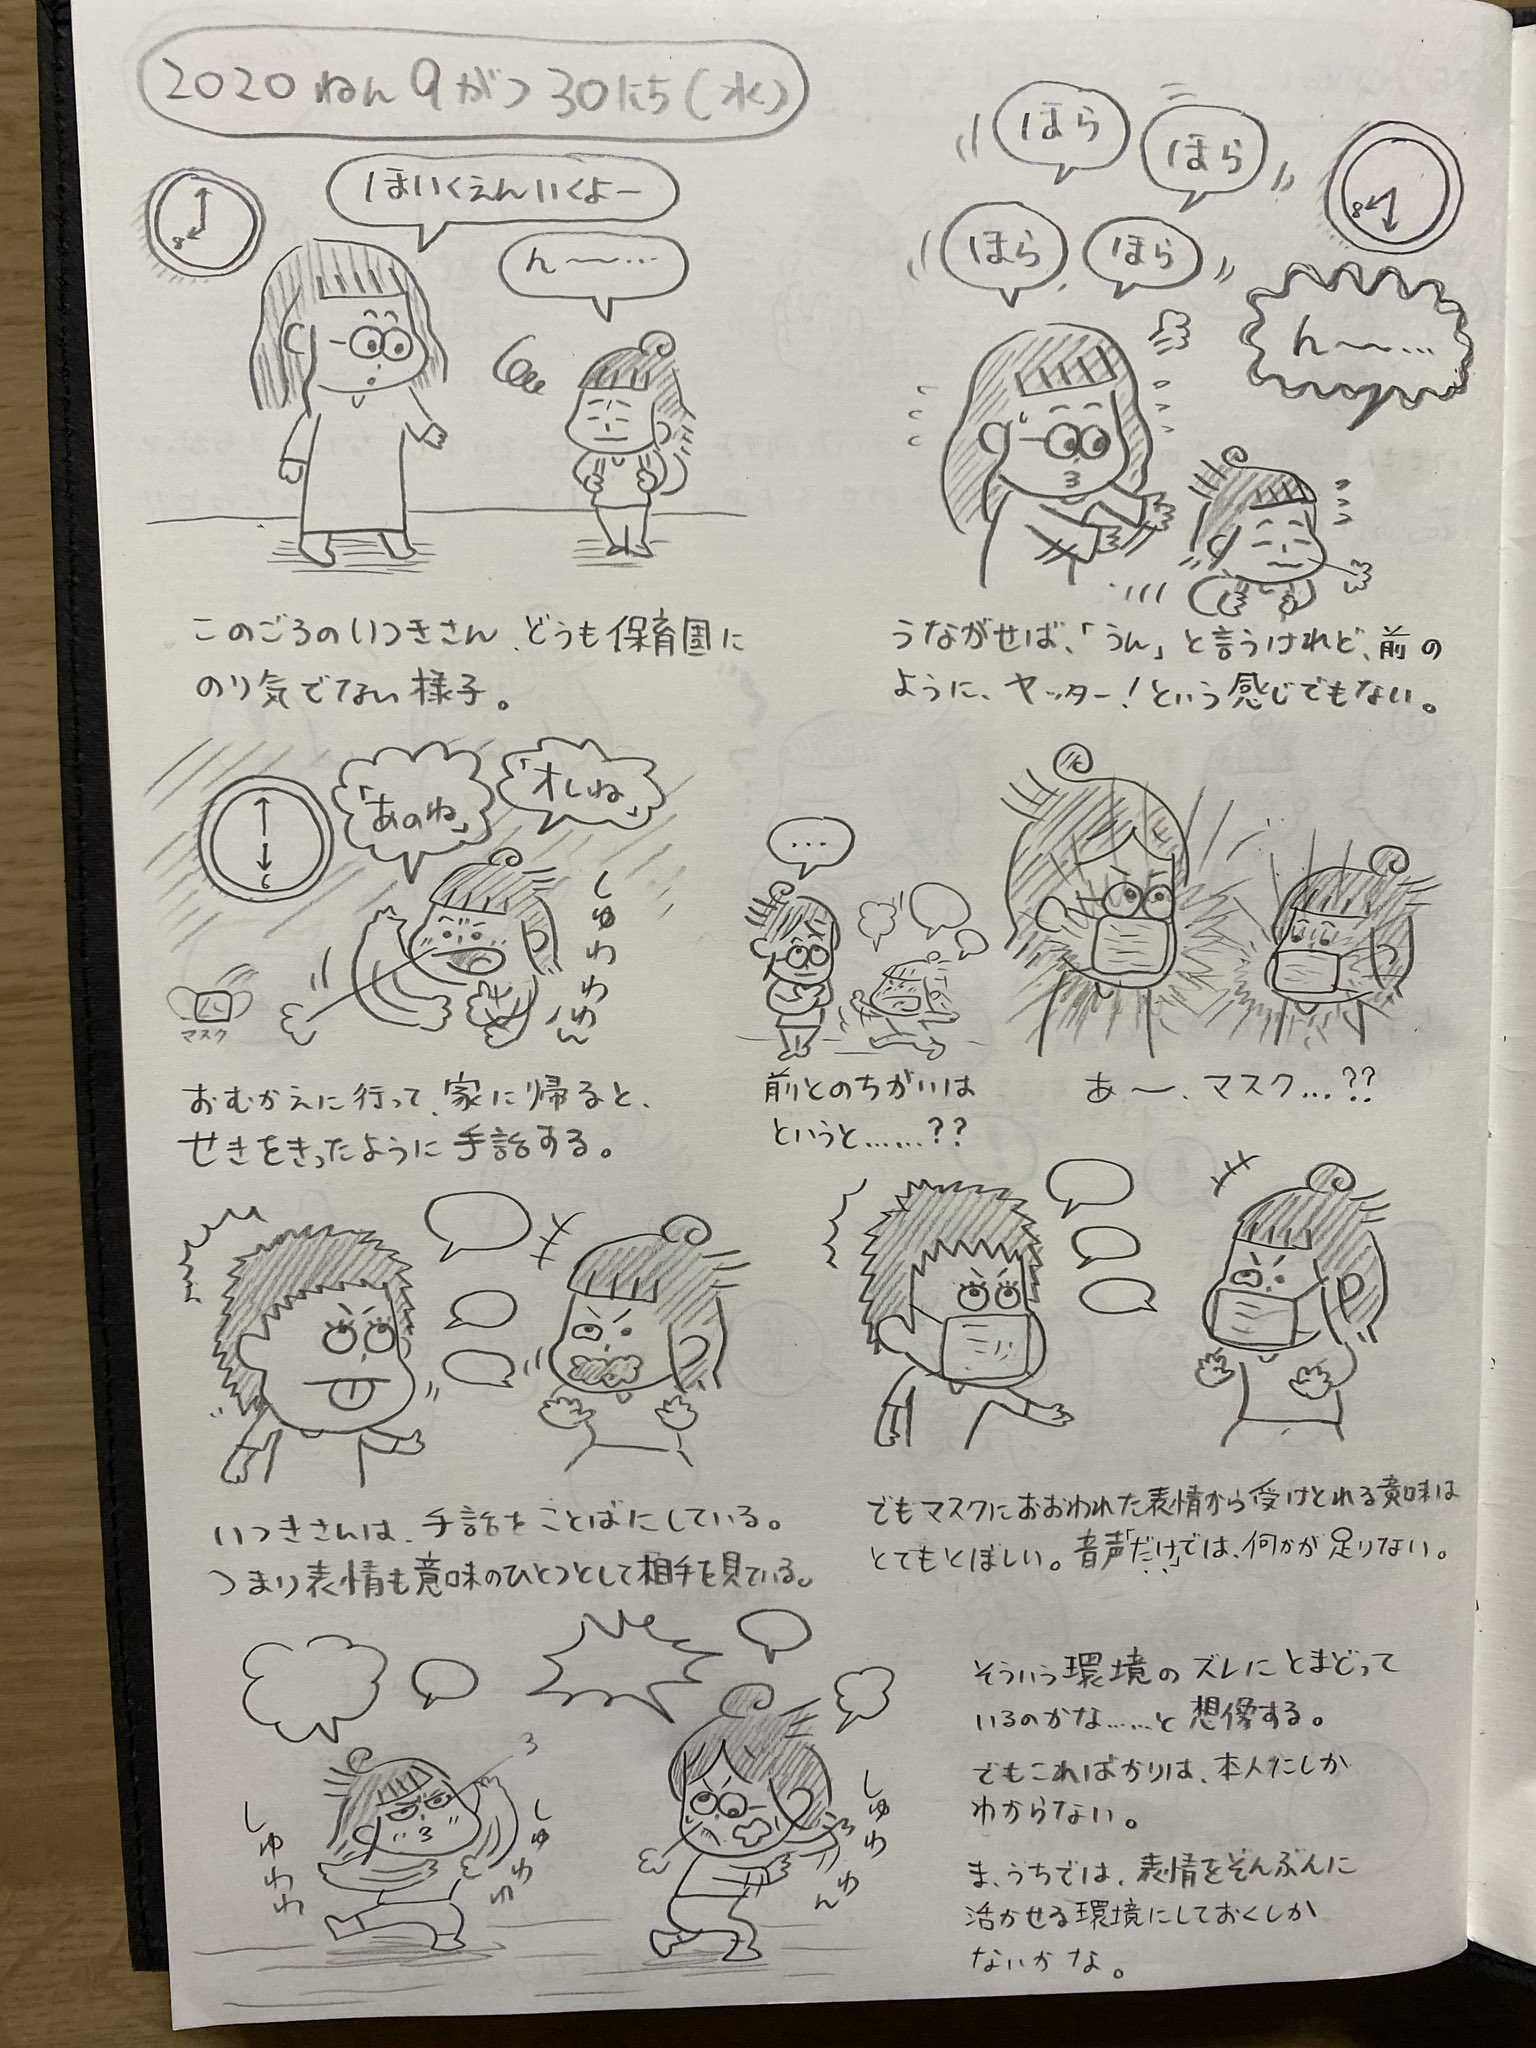 2020ねん9がつ30にち(水)
8
ほいくえんいくよー
ん〜…
このごろのいつきさん、どうも保育園に
のり気でない様子。
ほら
ほら
ほら
ほら
8
ん〜…
うながせば、「うん」と言うけれど、前の
ように、ヤッター!という感じでもない。
6
「あのね」
「オレね」
しゅわわわわん
マスク
おむかえに行って、家に帰ると、
せきをきったように手話する。
…
前とのちがいは
というと……??
あ〜、マスク…??
いつきさんは、手話をことばにしている。
つまり表情も意味のひとつとして相手を見ている。
でもマスクにおおわれた表情から受けとれる意味は
とてもとぼしい。音声「だけ」では、何かが足りない。
しゅわわ
しゅわわ
しゅわわん
そういう環境のズレにとまどって
いるのかな……と想像する。
でもこればかりは、本人にしか
わからない。
ま、うちでは、表情をぞんぶんに
活かせる環境にしておくしか
ないかな。